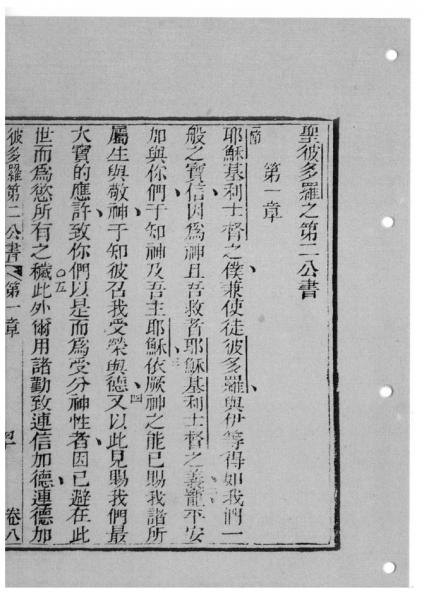 聖彼多羅之第二公書
第一章
一節
耶穌基利士督之僕兼使徒彼多羅與伊等得如我們一
般之寶信因為神且吾救者耶穌基利士督之義寵平安
二
加與你們于知神及吾主耶穌依厥神之能已賜我諸所
三
屬生與敬神于知彼召我受榮與德又以此見賜我們最
四
大寶的應許致你們以是而為受分神性者因已避在此
世而為慾所有之穢此外爾用諸勤致連信加德連德加
○五
彼多羅第二公書 第一章 卷八